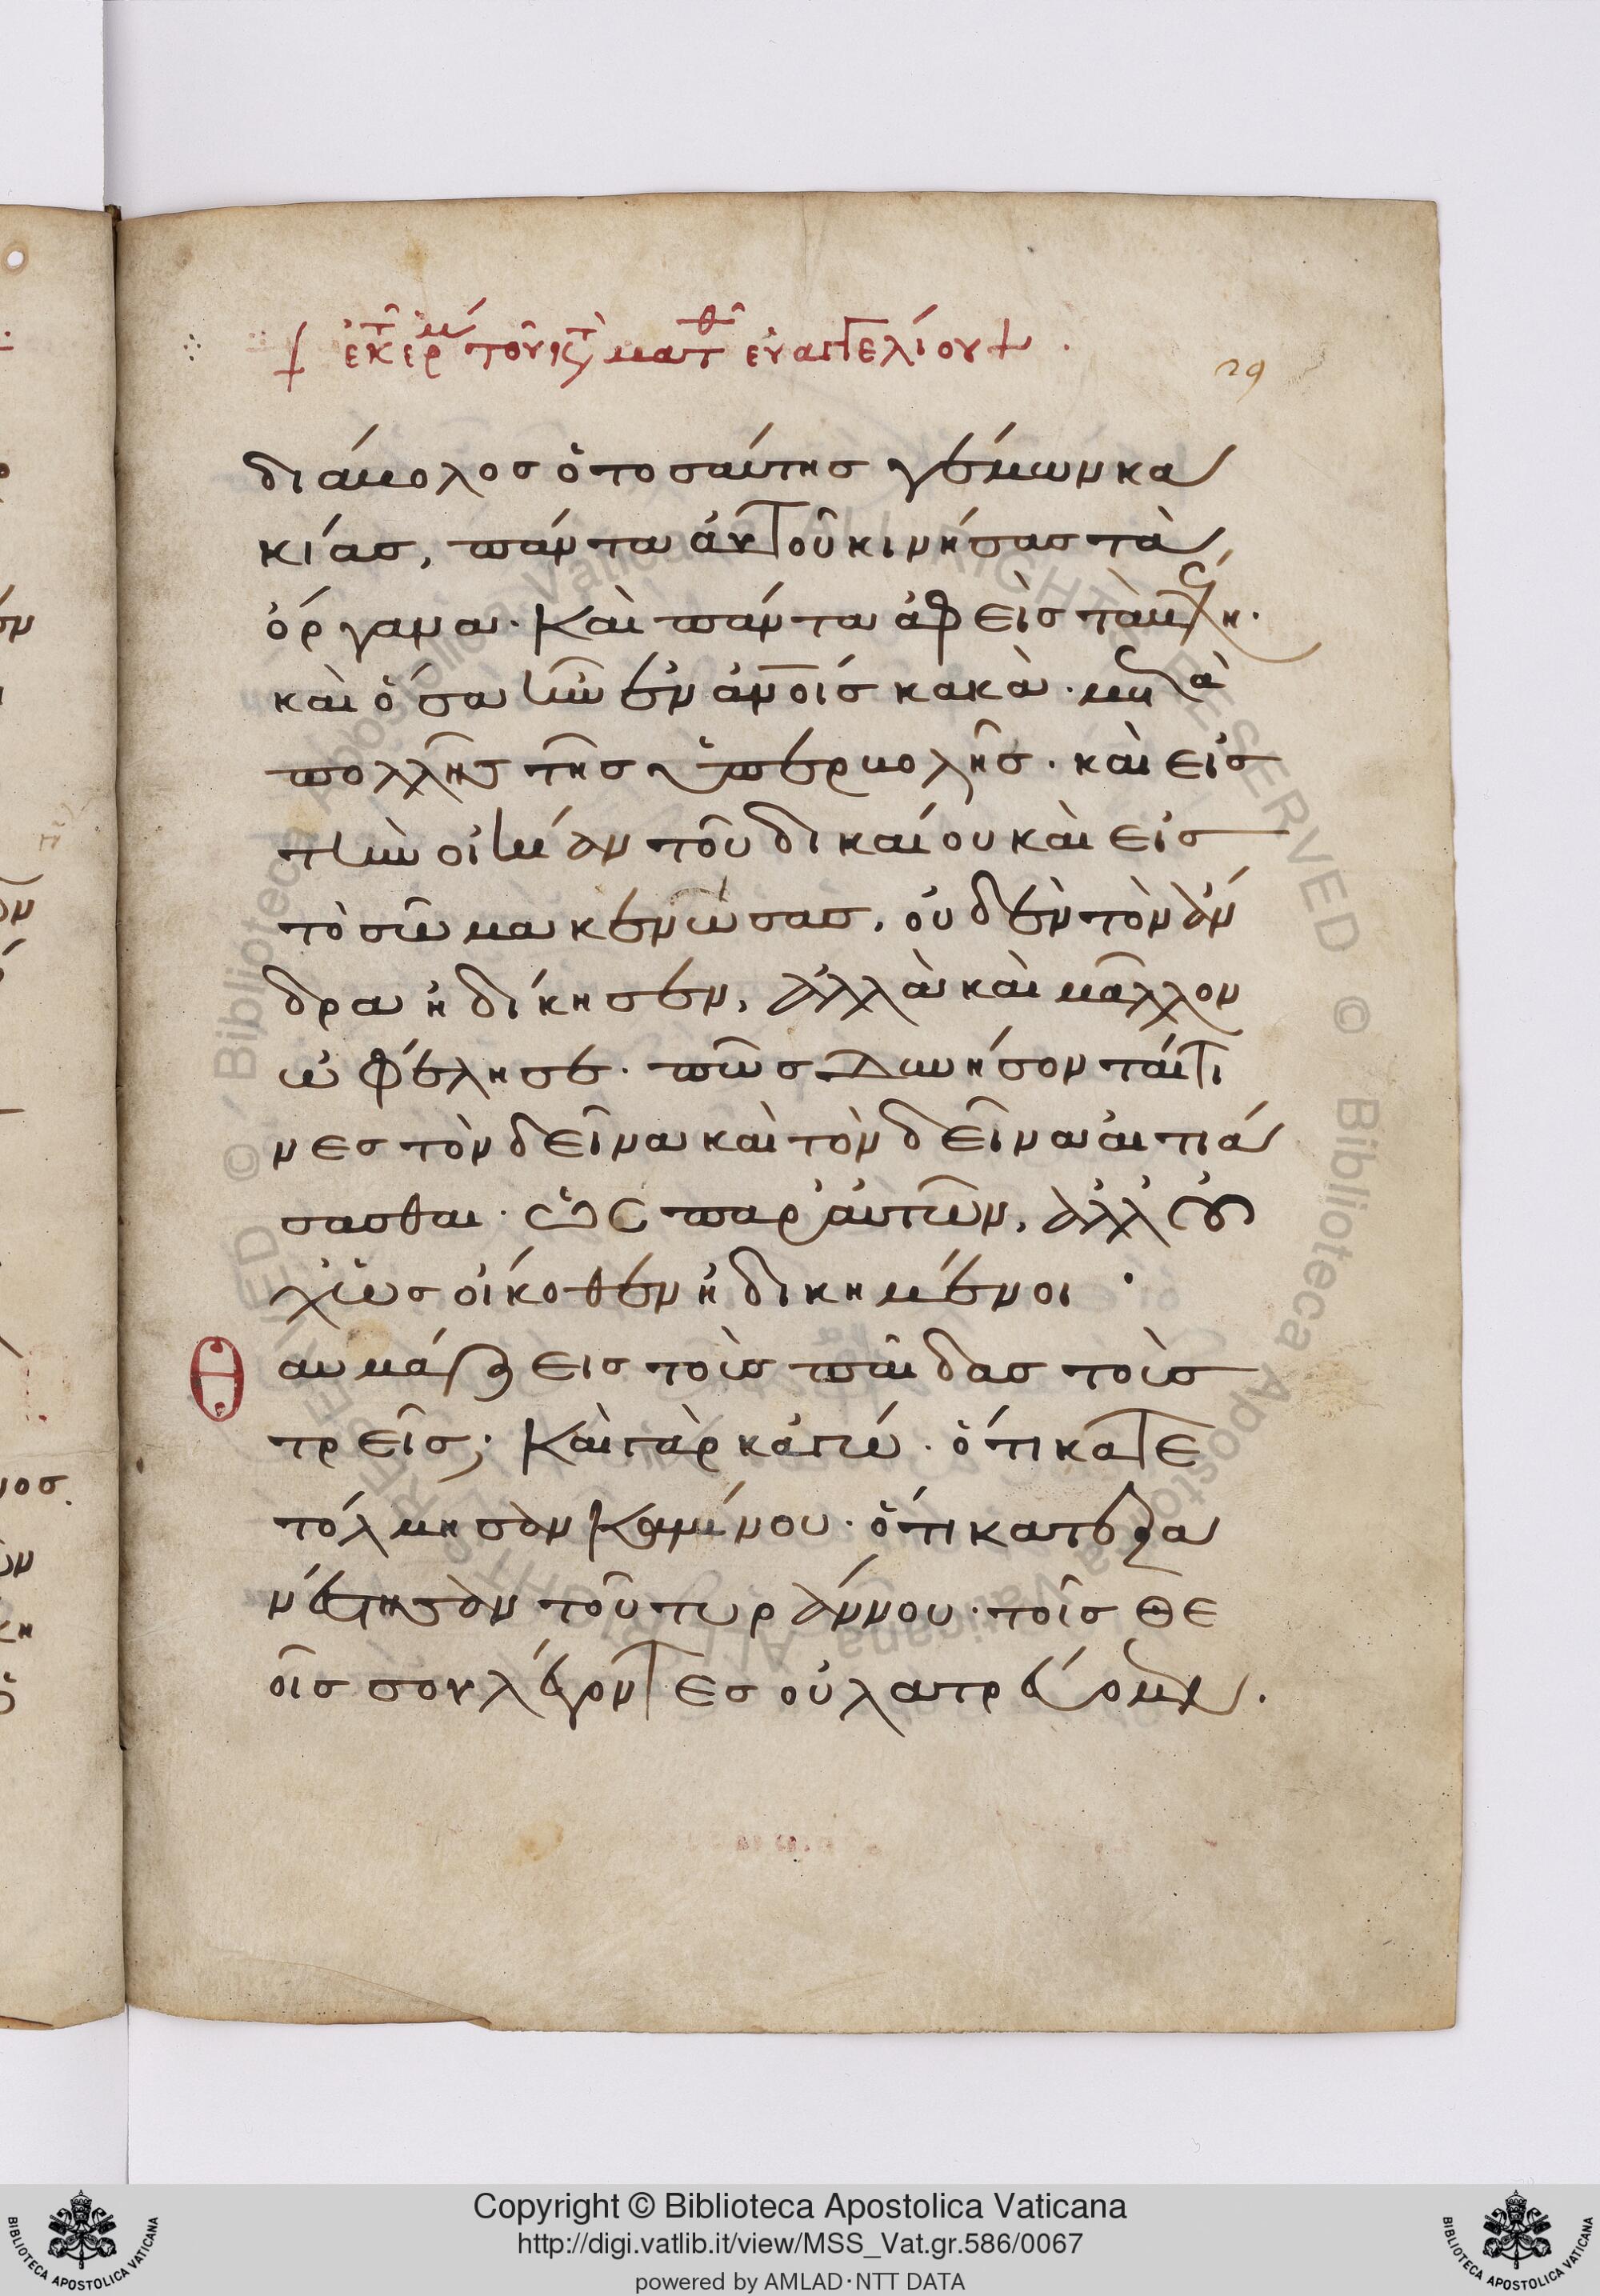 ἐκ τ ἑρμ τοῦ κ τ ματθ εὐαγγελίου
29
διάβολος ὁ τοσαύτης γέμων κα
κίας, πάντα αὐτοῦ κινήσας τὰ
ὄργανα· καὶ πάντα ἀφεὶς τὰ βέλη·
καὶ ὅσα ἦν ἐν ἀνοις κακὰ· μετὰ
πολλῆς τῆς ὑπερβολῆς· καὶ εἰς
τὴν οἰκίαν τοῦ δικαίου καὶ εἰς
τὸ σῶμα κενώσας, οὐδὲν τὸν ἄν
δρα ἠδίκησεν, ἀλλὰ καὶ μᾶλλον
ὠφέλησε· πῶς δυνήσονταί τι
νες τὸν δεῖνα καὶ τὸν δεῖνα αἰτιά
σασθαι· ὡς παρ' αὐτῶν, ἀλλ' οὐ
χὶ ὡς οἴκοθεν ἠδικημένοι·
Θαυμάζεις τοὺς παῖδας τοὺς
τρεῖς; καὶ γὰρ κἀγώ· ὅτι κατε
τόλμησαν καμίνου· ὅτι κατεξα
νέστησαν τοῦ τυράννου· τοῖς θε
οῖς σου λέγοντες οὐ λατρεύομεν.
Copyright © Biblioteca Apostolica Vaticana
http://digi.vatlib.it/view/MSS_Vat.gr.586/0067
powered by AMLAD·NTT DATA